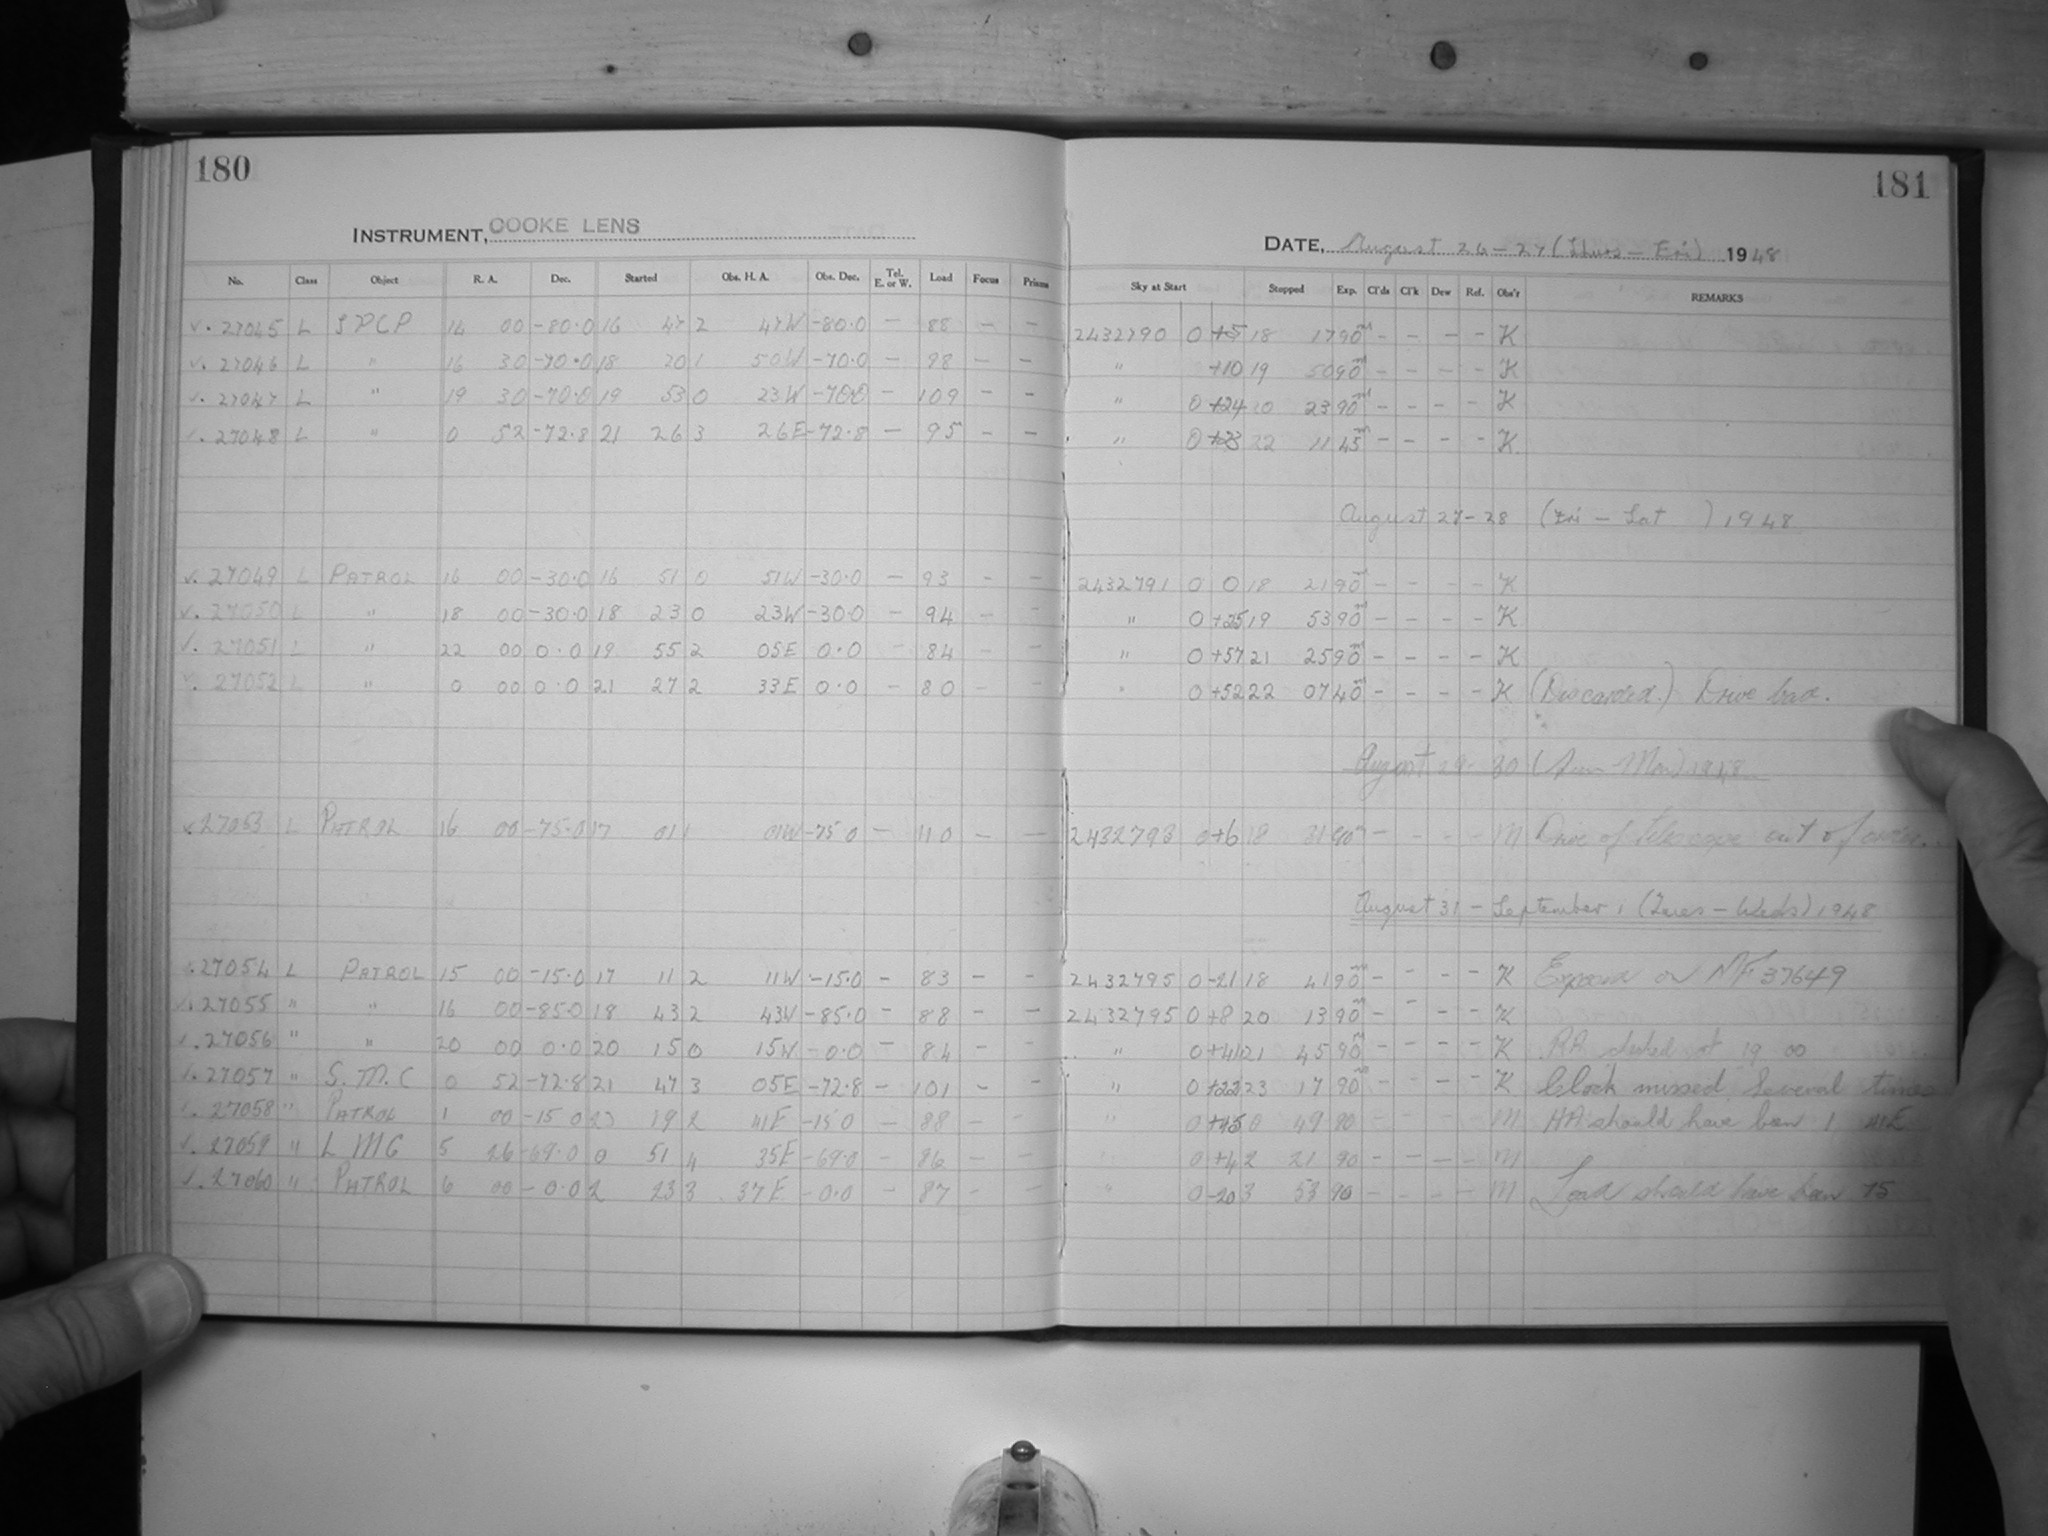 180
INSTRUMENT, COOKE LENS
No. Class Object R. A. Dec. Started Obs. H. A. Obs. Dec. Tel. E. or W. Load Focus Prisms
v. 27045 L SPCP 14 00 -80.0 16 47 2 47W -80.0 — 88 — —
v. 27046 L " 16 30 -70.0 18 20 1 50W -70.0 — 98 — —
v. 27047 L " 19 30 -70.0 19 53 0 23W -70.0 — 109 — —
v. 27048 L " 0 52 -72.8 21 26 3 26E -72.8 — 95 — —
v. 27049 L PATROL 16 00 -30.0 16 51 0 51W -30.0 — 93 — —
v. 27050 L " 18 00 -30.0 18 23 0 23W -30.0 — 94 — —
v. 27051 L " 22 00 0.0 19 55 2 05E 0.0 — 84 — —
v. 27052 L " 0 00 0.0 21 27 2 33E 0.0 — 80 — —
v. 27053 L PATROL 16 00 -75.0 17 01 1 01W -75.0 — 110 — —
v. 27054 L PATROL 15 00 -15.0 17 11 2 11W -15.0 — 83 — —
v. 27055 " " 16 00 -85.0 18 43 2 43W -85.0 — 88 — —
v. 27056 " " 20 00 0.0 20 15 0 15W -0.0 — 84 — —
v. 27057 " S.M.C 0 52 -72.8 21 47 3 05E -72.8 — 101 — —
v. 27058 " PATROL 1 00 -15.0 23 19 2 41E -15.0 — 88 — —
v. 27059 " LMC 5 26 -69.0 0 51 4 35E -69.0 — 86 — —
v. 27060 " PATROL 6 00 -0.0 2 23 3 37E -0.0 — 87 — —
181
DATE, August 26-27 (Thurs - Fri) 1948
Sky at Start Stopped Exp. Cl'ds Cl'k Dew Ref. Obs'r REMARKS
2432790 0 +5 18 17 90m — — — — K
" +10 19 50 90m — — — — K
" 0 +24 23 90m — — — — K
" 0 22 11 45m — — — — K
August 27-28 (Fri - Sat) 1948
2432791 0 0 18 21 90m — — — — K
" 0 +25 19 53 90m — — — — K
" 0 +57 21 25 90m — — — — K
" 0 +52 22 07 40m — — — — K (Discarded.) Drive bad.
August 29-30 (Sun - Mon) 1948
2432793 0 +6 18 31 90m — — — — M Drive of telescope out of order.
August 31 - September 1 (Tues - Weds) 1948
2432795 0 -21 18 41 90m — — — — K Exposed on MF 37649
2432795 0 +8 20 13 90m — — — — K
" 0 +41 21 45 90m — — — — K RA checked at 19 00
" 0 +22 23 17 90m — — — — K Clock missed several times
" 0 +45 0 49 90 — — — — M HA should have been 1 41E
" 0 +4 2 21 90 — — — — M
" 0 -20 3 53 90 — — — — M Load should have been 75